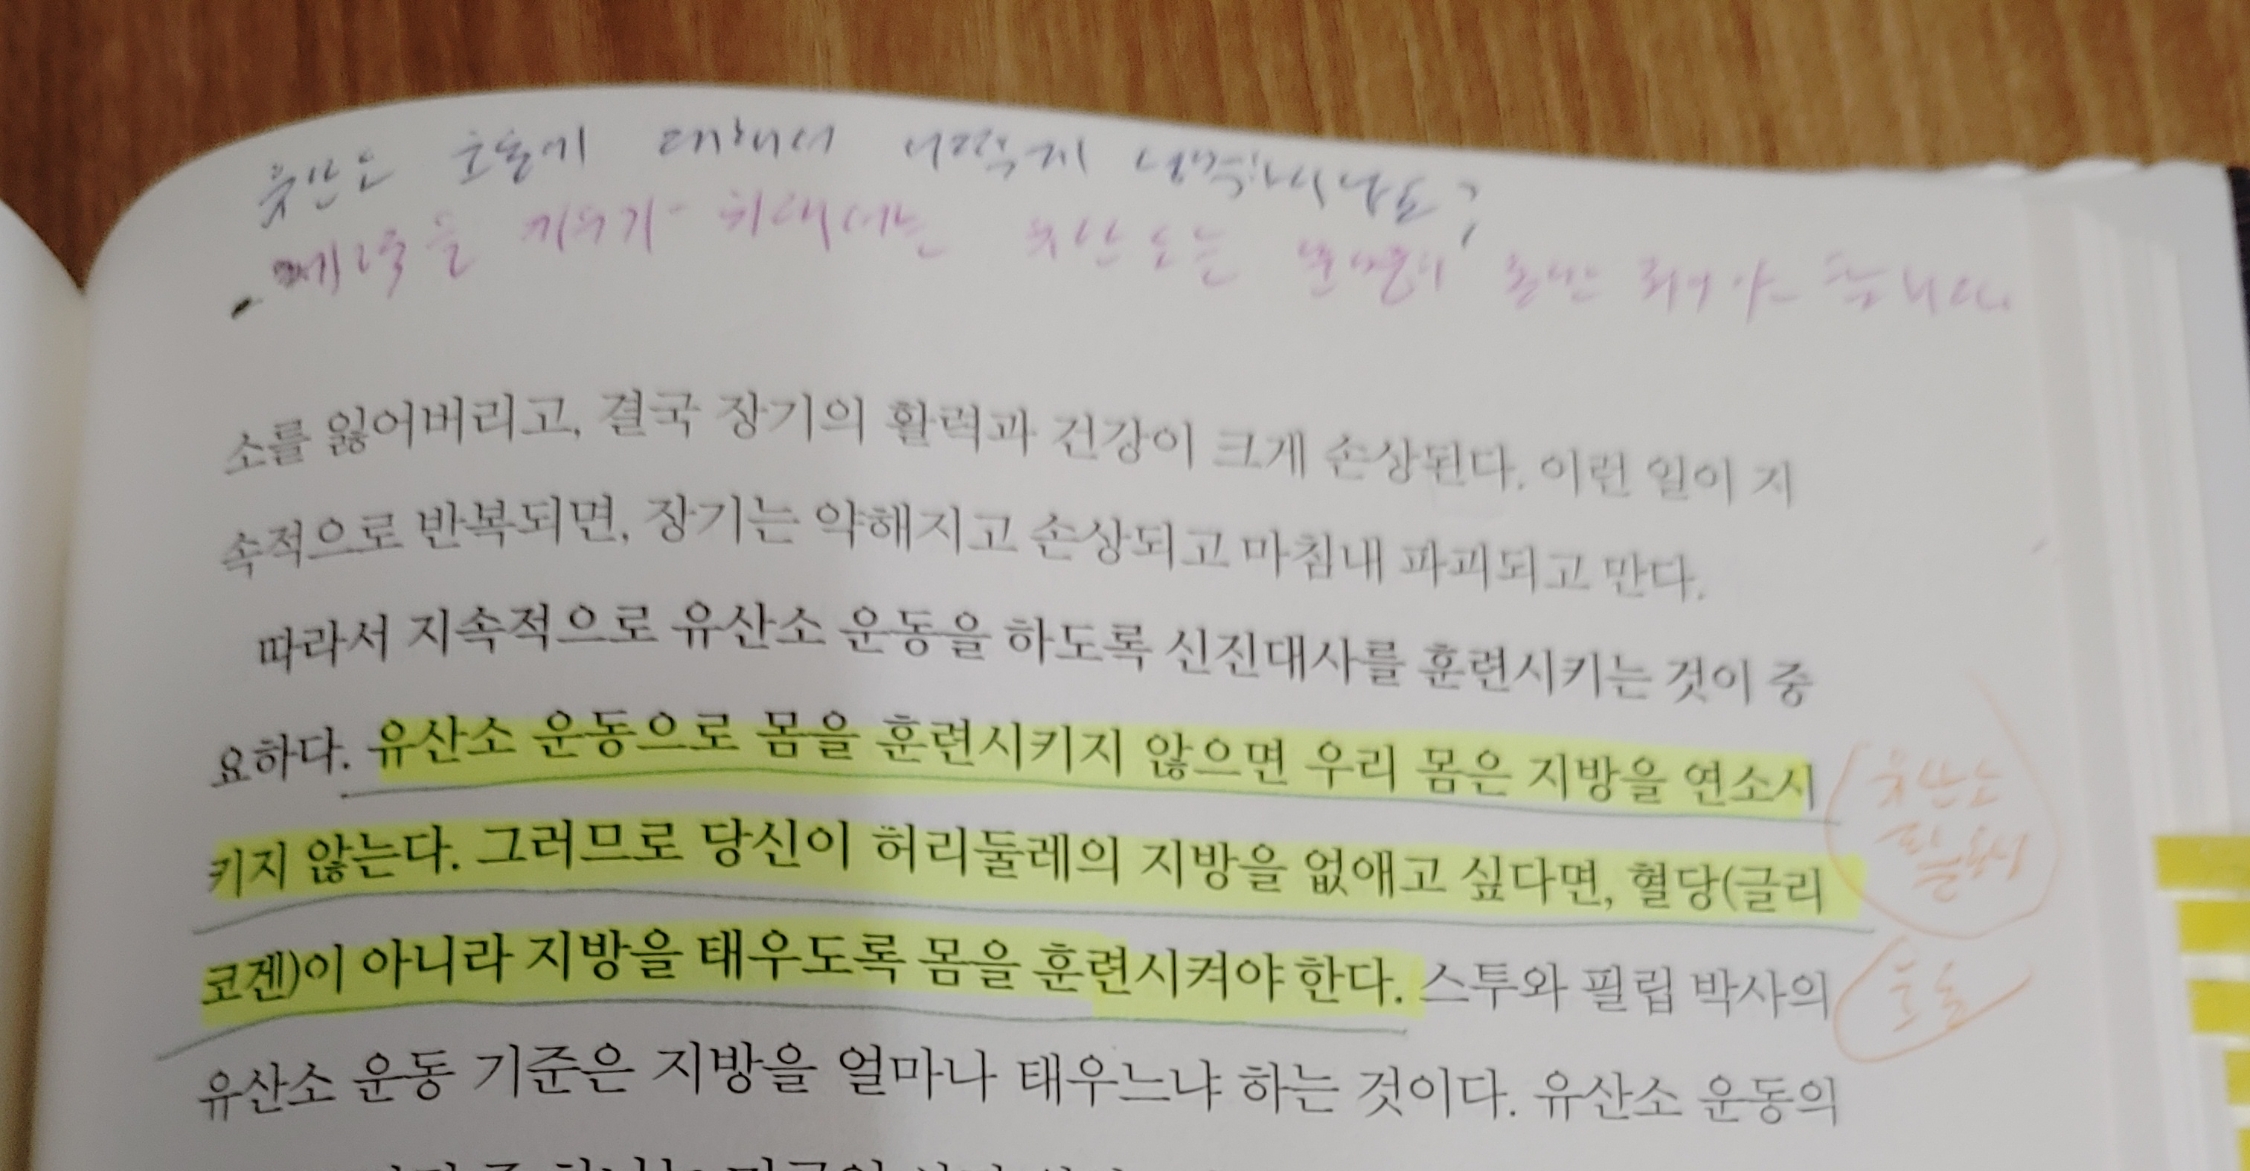 유산소 운동에 대해서 어떻게 생각하시나요?
체력을 키우기 위해서는 유산소는 분명히 동반 되어야 합니다.
소를 잃어버리고, 결국 장기의 활력과 건강이 크게 손상된다. 이런 일이 지
속적으로 반복되면, 장기는 약해지고 손상되고 마침내 파괴되고 만다.
따라서 지속적으로 유산소 운동을 하도록 신진대사를 훈련시키는 것이 중
요하다. 유산소 운동으로 몸을 훈련시키지 않으면 우리 몸은 지방을 연소시
키지 않는다. 그러므로 당신이 허리둘레의 지방을 없애고 싶다면, 혈당(글리
코겐)이 아니라 지방을 태우도록 몸을 훈련시켜야 한다. 스투와 필립 박사의
유산소 운동 기준은 지방을 얼마나 태우느냐 하는 것이다. 유산소 운동의
유산소
운동